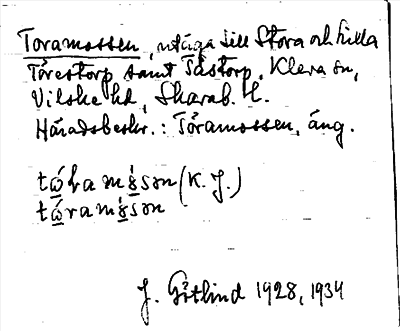 Toramossen, utäga till Stora och Lilla
Torestorp samt Tåstorp, Kleva sn,
Vilske hd, Skarab. l.
Häradsbeskr.: Toramossen, äng.
tώ̲ra mὼ̲sən (K. J.)
tώ̲ramὼ̲sən
J. Götlind 1928, 1934